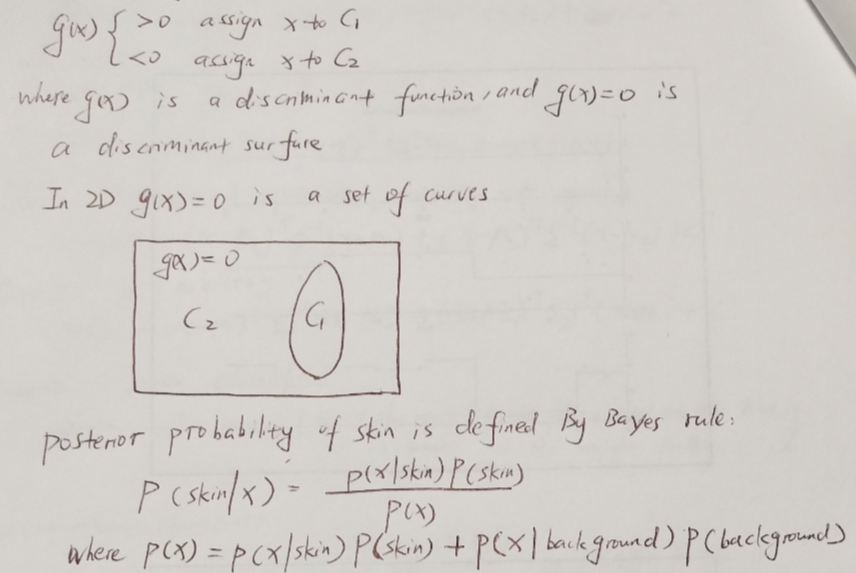 g(x) { >0 assign x to C₁
<0 assign x to C₂
where g(x) is a discriminant function, and g(x)=0 is
a discriminant surface
In 2D g(x)=0 is a set of curves
g(x)=0
C₂ C₁
posterior probability of skin is defined By Bayes rule:
P(skin/x) = p(x|skin)P(skin) / P(x)
where P(x) = p(x|skin) P(skin) + P(x|background) P(background)